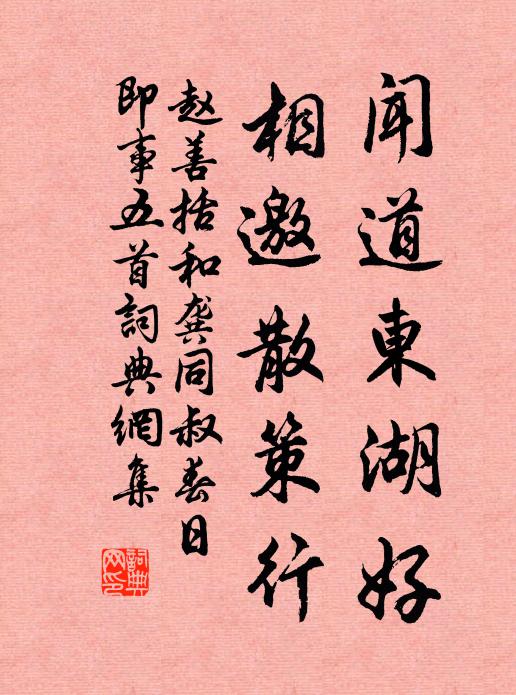 聞道東湖好
相邀散策行
赵善括和龚同叔春日
即事五首詞典網集
詞典
网印